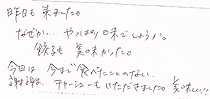 昨日も来ました。
なぜか… やっぱり味でしょうか。
餃子も美味かった。
今回は今まで食べたことのない。
チャーシューもいただきました。美味しい!!